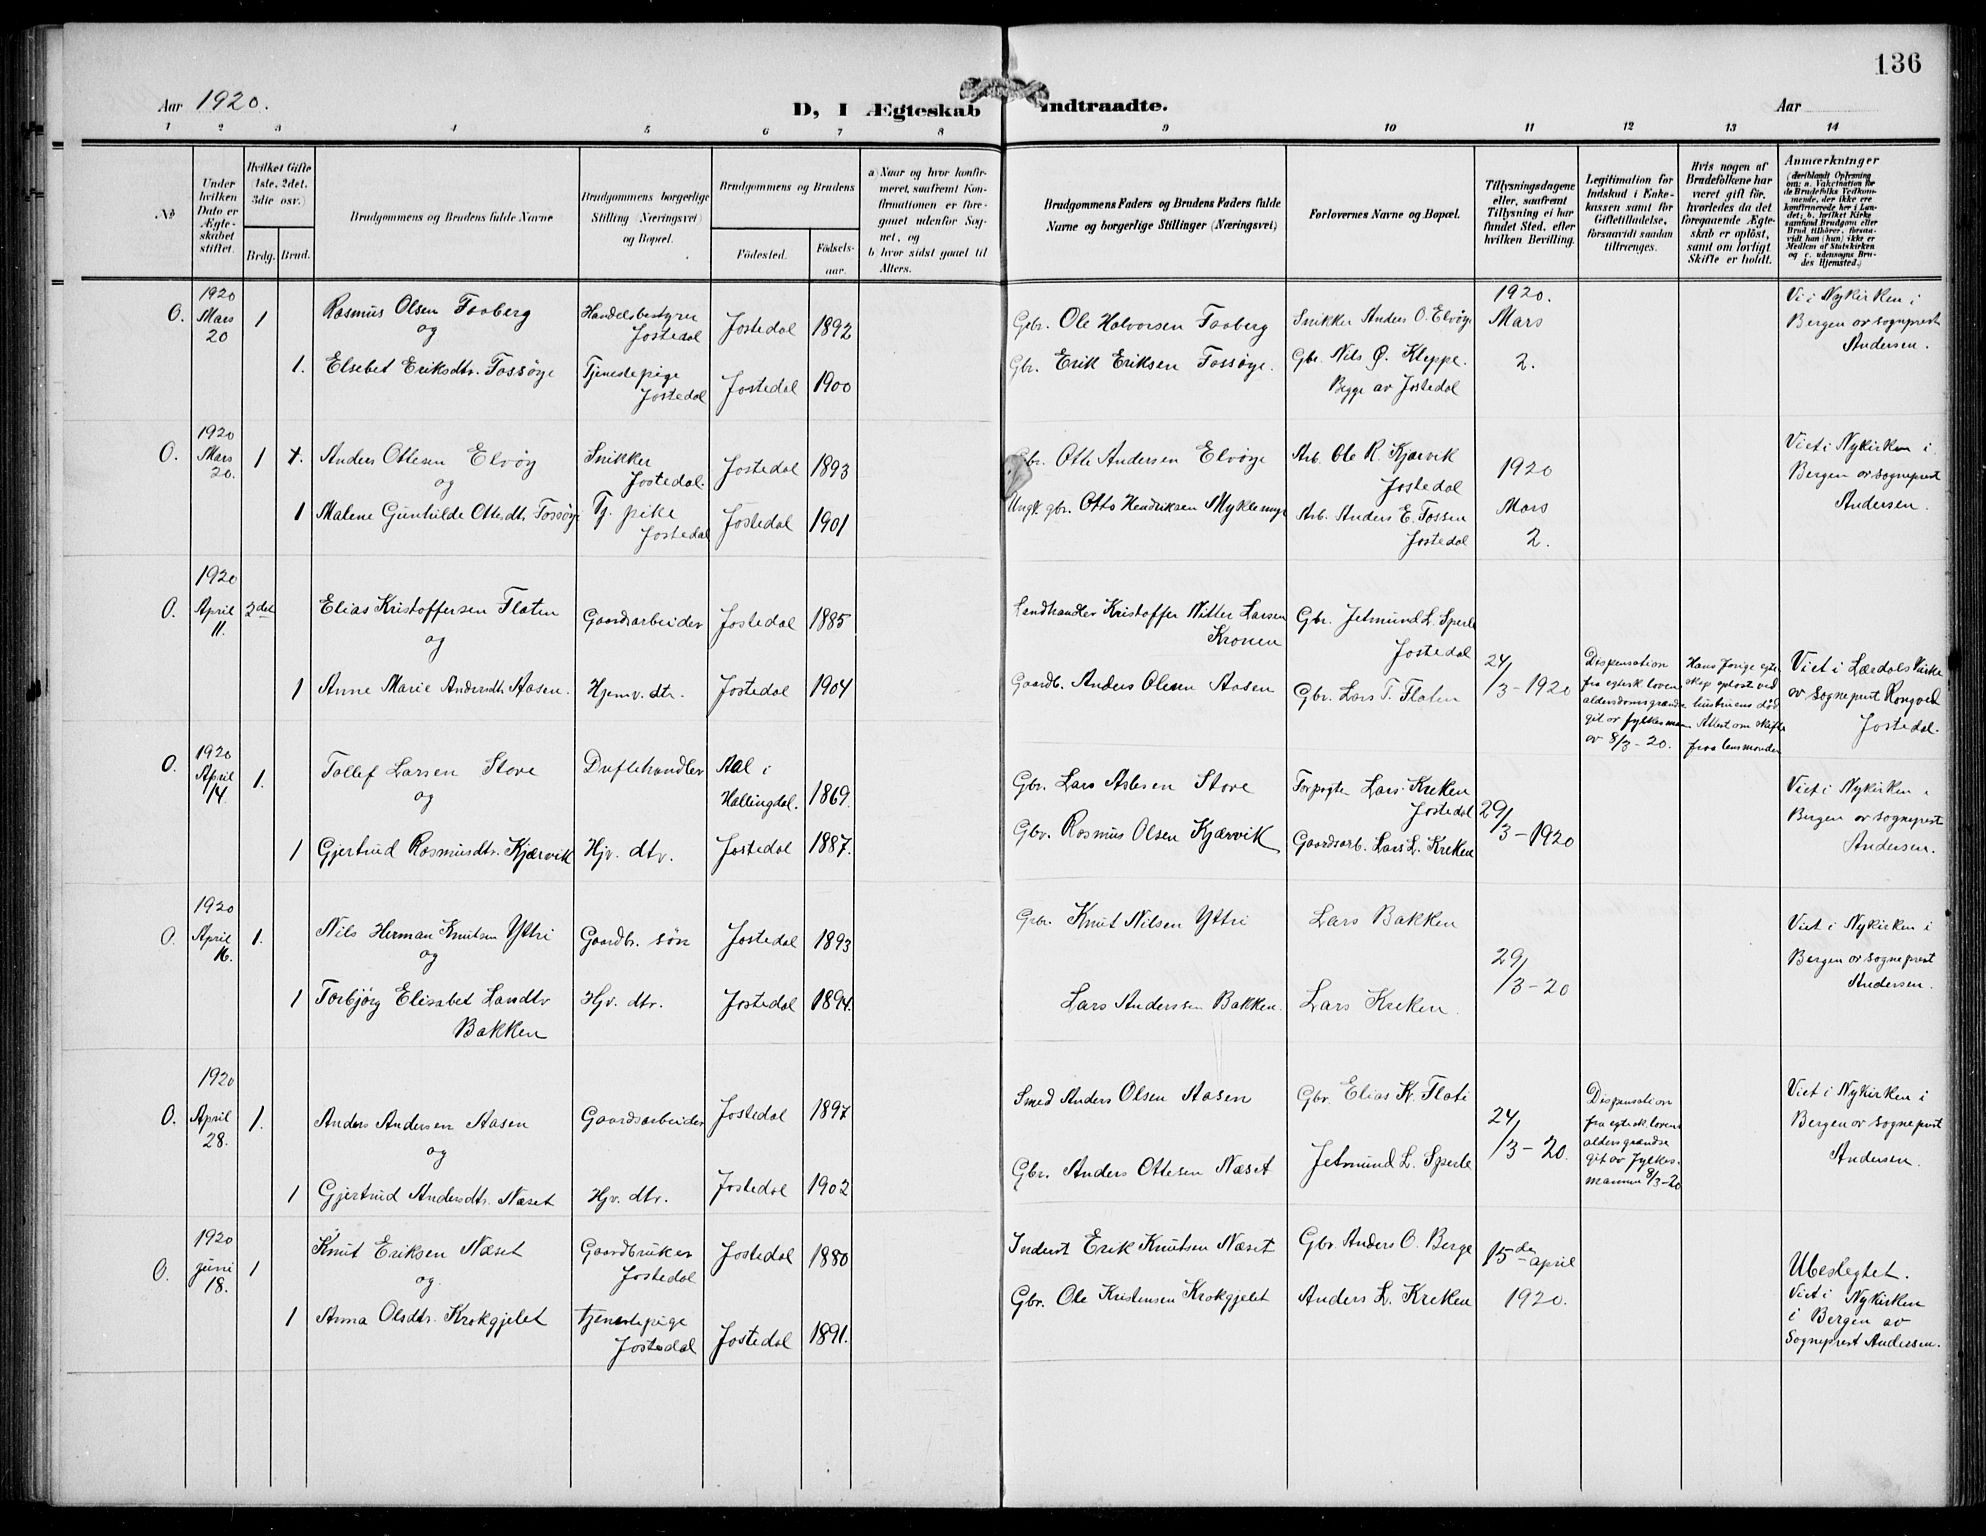 136
Aar 1920.
D, I Ægteskab Indtraadte.
Aar
1 2 3 4 5 6 7 8 9 10 11 12 13 14
No
Under hvilken Dato er Ægteskabet stiftet.
Hvilket Gifte (1ste, 2det, 3die osv.)
Brdg. Brud.
Brudgommens og Brudens fulde Navne
Brudgommens borgerlige Stilling (Næringsvei) og Bopæl.
Brudgommens og Brudens
Fødested. Fødselsaar.
a) Naar og hvor konfirmeret, saafremt Konfirmationen er foregaaet udenfor Sognet, og
b hvor sidst gaaet til Alters.
Brudgommens Faders og Brudens Faders fulde Navne og borgerlige Stillinger (Næringsvei)
Forlovernes Navne og Bopæl.
Tillysningsdagene eller, saafremt Tillysning ei har fundet Sted, efter hvilken Bevilling.
Legitimation for Indskud i Enkekassen samt for Giftetilladelse, forsaavidt saadan tiltrænges.
Hvis nogen af Brudefolkene har været gift før, hvorledes da det foregaaende Ægteskab er opløst, samt om lovligt Skifte er holdt.
Anmærkninger (deriblandt Oplysning om: a. Vakcination for de Brudefolks Vedkommende, der ikke ere konfirmerede her i Landet; b. hvilket Kirkesamfund Brudgom eller Brud tilhører, forsaavidt han (hun) ikke er Medlem af Statskirken og c. udensogns Brudes Hjemsted.)
O. 1920 Mars 20 1 Rasmus Olsen Faaberg Handelsbestyrer Jostedal Jostedal 1892 Gbr. Ole Halvorsen Faaberg Snikker Anders O. Elvøy 1920. Mars Vi i Nykirken i
og Bergen av sogneprest
1. Elsebet Eriksdtr. Fossøye Tjenestepige Jostedal Jostedal 1900 Gbr. Erik Eriksen Fossøye. Gbr. Nils Ø. Kleppe. Begge av Jostedal 2. Andersen.
O. 1920 Mars 20. 1 1. Anders Ottesen Elvøy Snikker Jostedal. Jostedal 1893 Gbr. Otte Andersen Elvøye Arb. Ole R. Kjærvik Jostedal 1920 Viet i Nykirken i
og Bergen av sogneprest
1 Malene Gunhilde Ottesdtr. Fossøy Tj. pike Jostedal Jostedal 1901 Ungk. gbr. Otto Hendriksen Myklemyr Arb. Anders E. Fossen Jostedal Mars 2. Andersen.
O. 1920 April 11. 2det Elias Kristoffersen Flaten Gaardsarbeider Jostedal 1885 Landhandler Kristoffer Nitter Larsen Kronen Gbr. Jetmund L. Sperle Jostedal
og
1 Anne Marie Andersdtr. Aasen. Hjemv. dtr. Jostedal 1904 Gaardb. Anders Olesen Aasen Gbr. Lars T. Flaten 24/3-1920
Dispensation fra egtesk.loven aldersdomsgrændse git av fylkesman av 8/3-20.
Hans forige egteskap opløst ved hustruens død Attest om skifte fraa lensmanden
Viet i Lærdals kirke av sogneprest Rongved Jostedal.
O. 1920 April 14. 1. Tollef Larsen Store Duftehandler Aal i Hallingdal. 1869. Gbr. Lars Aslesen Store Forpagter Lars Kreken Jostedal 29/3-1920 Viet i Nykirken i
og Bergen av sogneprest
1 Gjertrud Rasmusdtr. Kjærvik Hjv. dtr. Jostedal 1887. Gbr. Rasmus Olsen Kjærvik Gaardsarb. Lars L. Kreken Andersen.
O. 1920 April 16. 1. Nils Herman Knutsen Yttri Gaardbr. søn Jostedal 1893 Gbr. Knut Nilsen Yttri Lars Bakken 29/3-20 Viet i Nykirken i
og Bergen av sogneprest
1 Torbjørg Elisabet Larsdtr Bakken Hjv. dtr. Jostedal 1894. Lars Anderssen Bakken. Lars Kreken. Andersen.
O. 1920 April 28. 1. Anders Andersen Aasen Gaardsarbeider Jostedal 1897 Smed Anders Olsen Aasen Gbr. Elias K. Flati 24/3-20. Viet i Nykirken i
og Bergen av sogneprest
1 Gjertrud Andersdtr. Næset Hjv. dtr. Jostedal 1902 Gbr. Anders Ottesen Næset Jetmund L. Sperle Andersen.
Dispensation fra egtesk.lovens aldersgrændse git av fylkesmannen 8/3-20
O. 1920 juni 18. 1 Knut Eriksen Næset Gaardbruker Jostedal Jostedal 1880 Inderst Erik Knutsen Næset Gbr. Anders O. Berge 15de april Ubeslegtet.
og. Viet i Nykirken
1 Anna Olsdtr. Krokgjelet tjenestepige Jostedal Jostedal 1891. Gbr. Ole Kristensen Krokgjelet Anders L. Kreken 1920. i Bergen av
Sogneprest Andersen.